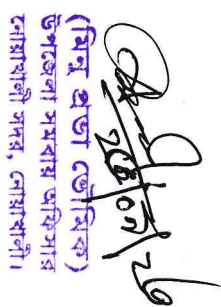 (মিনু প্রভা ভৌমিক)
উপজেলা সমবায় অফিসার
নোয়াখালী সদর, নোয়াখালী।